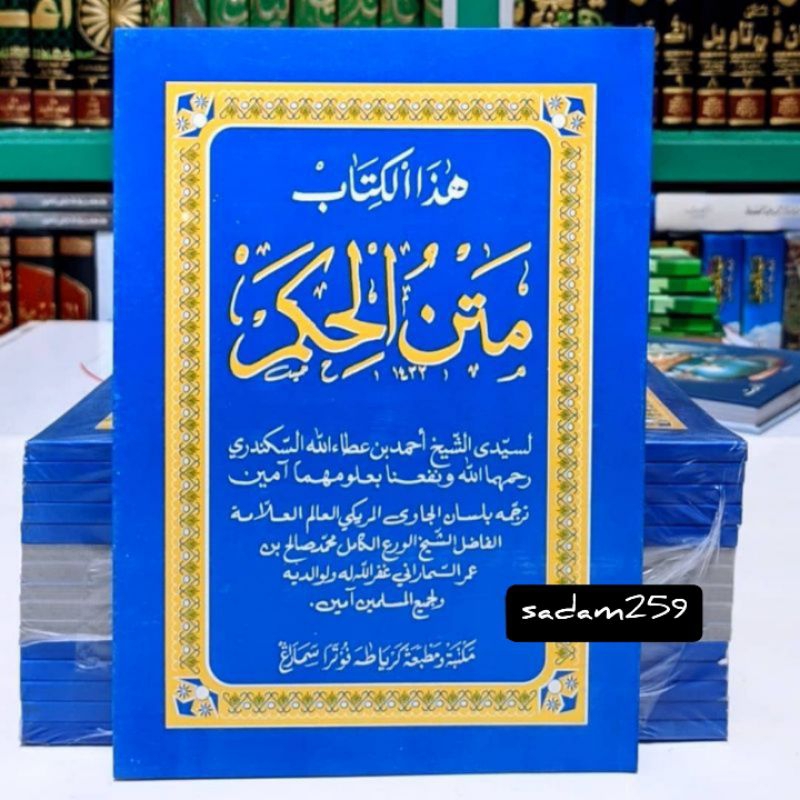 هَذَا الكِتَاب
مَتْنُ الحِكَمْ
١٤٣٢
لسيّدى الشّيخ أحمد بن عطاء الله السّكندري
رحمهما الله ونفعنا بعلومهما آمين
ترجمه بلسان الجاوى المريكي العالم العلّامة
الفاضل الشّيخ الورع الكامل محمّد صالح بن
عمر السّماراني غفر الله له ولوالديه
ولجميع المسلمين آمين.
مكتبة ومطبعة كرياطه فوترا سماراغ
sadam259